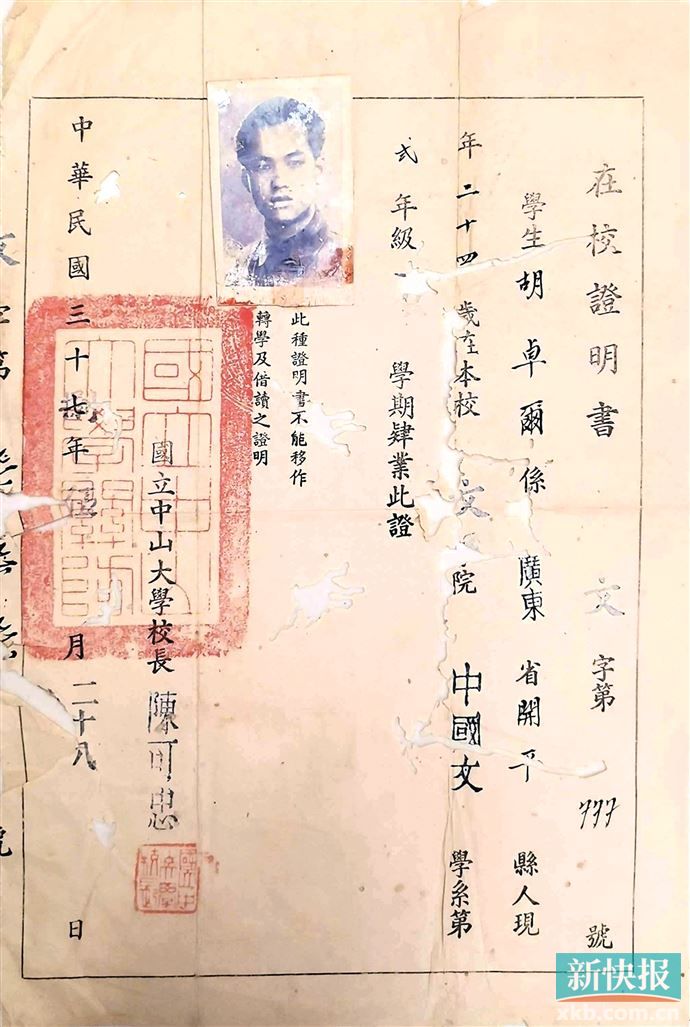 在校證明書 文字第 777 號
學生胡卓爾係廣東省開平縣人現
年二十四歲在本校文 院中國文學系第
弍年級 學期肄業此證
此種證明書不能移作
轉學及借讀之證明
國立中山大學校長陳可忠
中華民國三十七年 月二十八日
字第 號
新快报
xkb.com.cn